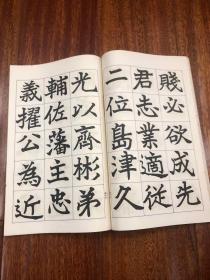 賤必欲成先
君志業適從
二位島津久
光以齊彬弟
輔佐藩主忠
義擢公為近